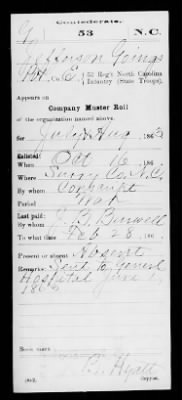 Confederate.
G 53 N.C.
Jefferson Goings
Pvt., Co. , 53 Reg't North Carolina
Infantry (State Troops).
Appears on
Company Muster Roll
of the organization named above,
for July & Aug, 1863
Enlisted:
When Oct 16, 186
Where Surry Co. N.C.
By whom Conscript
Period War
Last paid:
By whom J. B. Burwell
To what time Feb 28, 186
Present or absent Absent
Remarks: Sent to General
Hospital June 1,
1863
Book mark:
Hyatt
(642) Copyist.